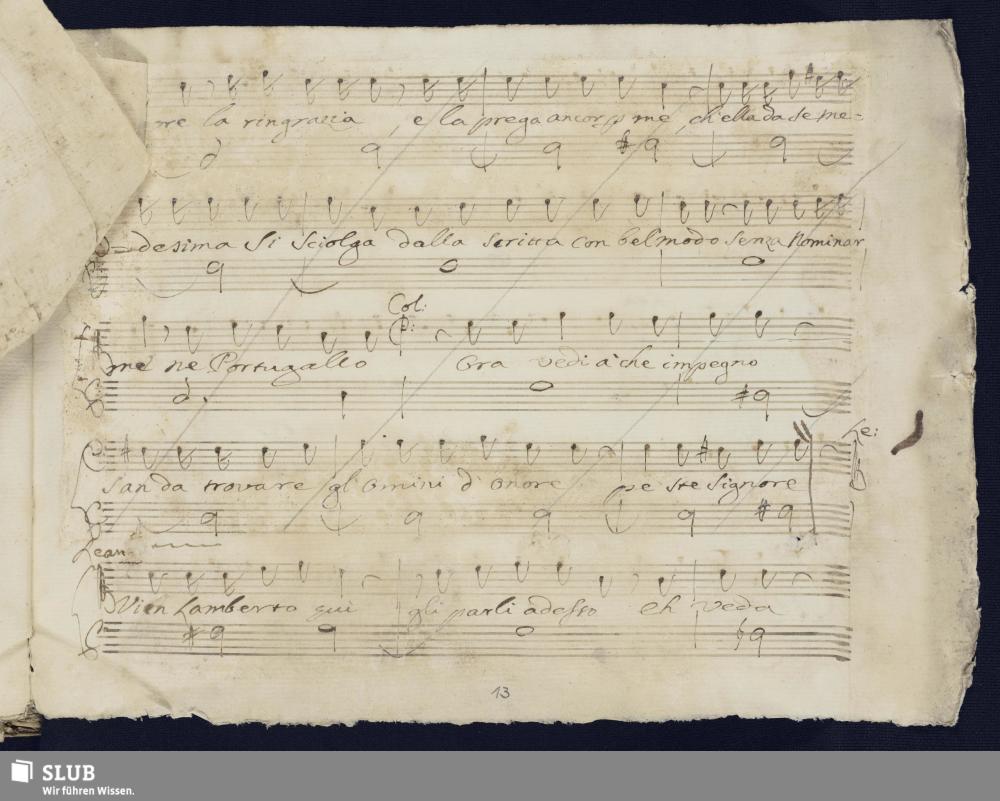 re la ringrazia, e la prega ancor p me, ch'ella da se me=
desima si sciolga dalla scritta con bel modo senza Nominar
Col:
me ne Portugallo Ora vedi à che impegno
Le:
san da trovare gl'Omini d'Onore pe ste Signore
Lean
Vien Lamberto qui gli parli adesso Eh veda
13
SLUB
Wir führen Wissen.